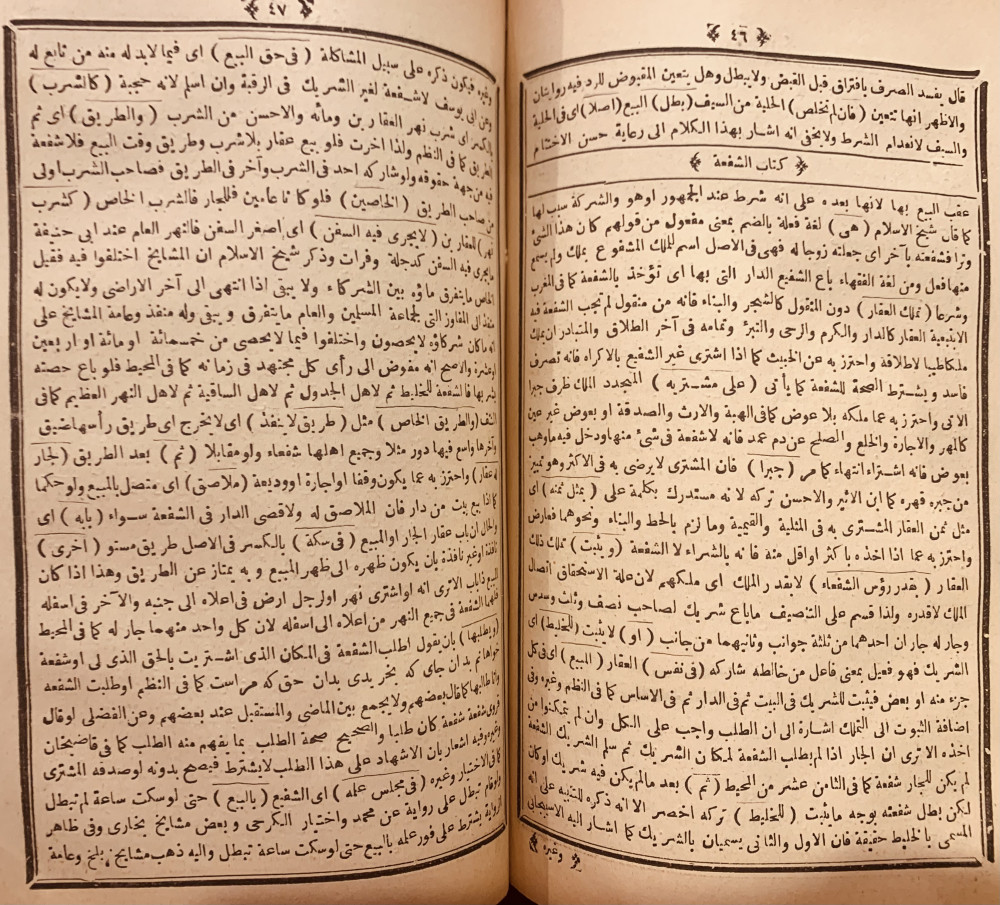 ﴿ ٤٦ ﴾
قال يفسد الصرف بافتراق قبل القبض ولا يبطل وهل يتعين المقبوض للرد فيه روايتان
والاظهر انها تتعين ( فان لم يخلص ) الحلية من السيف ( بطل ) البيع ( اصلا ) اى فى الحلية
والسيف لانعدام الشرط ولا يخفى انه اشار بهذا الكلام الى رعاية حسن الاختتام
﴿ كتاب الشفعة ﴾
عقب البيع بها لانها بعده على انه شرط عند الجمهور او هو والشركة سبب لها
كما قال شيخ الاسلام ( هى ) لغة فعلة بالضم بمعنى مفعول من قولهم كان هذا الشئ
وترا فشفعته بآخر اى جعلته زوجا له فهى فى الاصل اسم للملك المشفوع بملك ولم يسمع
منها فعل ومن لغة الفقهاء باع الشفيع الدار التى بها اى تؤخذ بالشفعة كما فى المغرب
وشرعا ( تملك العقار ) دون المنقول كالشجر والبناء فانه من منقول لم تجب الشفعة فيه
الابتبعية العقار كالدار والكرم والرحى والبئر وتمامه فى آخر الطلاق والمتبادر ان يملك
ملكا طيبا لاطلاقه واحترز به عن الخبيث كما اذا اشترى غير الشفيع بالاكراه فانه تصرف
فاسد ويشترط الصحة للشفعة كما يأتى ( على مشتريه ) المتجدد الملك ظرف جبرا
الاتى واحترز به عما ملكه بلا عوض كما فى الهبة والارث والصدقة او بعوض غير عين
كالمهر والاجارة والخلع والصلح عن دم عمد فانه لاشفعة فى شئ منها ودخل فيه ما وهب
بعوض فانه اشتراء انتهاء كما مر ( جبرا ) فان المشترى لا يرضى به فى الاكثر وهو تمييز
من جبره قهره كما ابن الاثير والاحسن تركه لانه مستدرك بكلمة على ( بمثل ثمنه ) اى
مثل ثمن العقار المشترى به فى المثلية والقيمية وما لزم بالحط والبناء ونحوهما فعارض
واحترز به عما اذا اخذه باكثر او اقل منه فانه بالشراء لا الشفعة ( ويثبت ) تملك ذلك
العقار ( بقدر رؤس الشفعاء ) لا بقدر الملك اى ملكهم لان علة الاستحقاق اتصال
الملك لا قدره ولذا قسم على التنصيف ما باع شريك لصاحب نصف وثلث وسدس
وجار له جاران احدهما من ثلثة جوانب وثانيهما من جانب ( او ) لا يثبت ( للخليط ) اى
الشريك فهو فعيل بمعنى فاعل من خالطه شاركه ( فى نفس ) العقار ( المبيع ) اى فى كل
جزء منه او بعض فيثبت للشريك فى البيت ثم فى الدار ثم فى الاساس كما فى النظم وغيره وفى
اضافة الثبوت الى التملك اشارة الى ان الطلب واجب على الكل وان لم يتمكنوا من
اخذه الا ترى ان الجار اذا لم يطلب الشفعة لمكان الشريك ثم سلم الشريك الشفعة
لم يكن للجار شفعة كما فى الثامن عشر من المحيط ( ثم ) بعد ما لم يكن فيه شريك او كان
لكن بطل شفعته بوجه ما يثبت ( للخليط ) تركه اخصر الا انه ذكره للتنبه على انه
المسمى بالخليط حقيقة فان الاول والثانى يسميان بالشريك كما اشار اليه الاسبيجابى
﴿ وغيره ﴾
﴿ ٤٧ ﴾
وغيره فيكون ذكره على سبيل المشاكلة ( فى حق المبيع ) اى فيما لابد له منه من تابع له
وعن ابى يوسف لاشفعة لغير الشريك فى الرقبة وان اسلم لانه حجبة ( كالشرب )
بالكسر اى شرب نهر العقارين ومائه والاحسن من الشرب ( والطريق ) اى ثم
الطريق كما فى النظم ولذا اخرت فلو بيع عقار بلا شرب وطريق وقت البيع فلا شفعة
فيه من جهة حقوقه ولو شاركه احد فى الشرب وآخر فى الطريق فصاحب الشرب اولى
من صاحب الطريق ( الخاصين ) فلو كانا عامين فللجار فالشرب الخاص ( كشرب
نهر ) العقارين ( لا يجرى فيه السفن ) اى اصغر السفن فالنهر العام عند ابى حنيفة
ما يجرى فيه السفن كدجلة وفرات وذكر شيخ الاسلام ان المشايخ اختلفوا فيه فقيل
الخاص ما يتفرق ماؤه بين الشركاء ولا يبقى اذا انتهى الى آخر الاراضى ولا يكون له
منفذ الى المفاوز التى لجماعة المسلمين والعام ما يتفرق ويبقى وله منفذ وعامة المشايخ على
انه ما كان شركاؤه لا يحصون واختلفوا فيما لا يحصى من خمسمائة او مائة او اربعين
او عشرة والاصح انه مفوض الى رأى كل مجتهد فى زمانه كما فى المحيط فلو باع حصته
بشربها فالشفعة للخليط ثم لاهل الجدول ثم لاهل الساقية ثم لاهل النهر العظيم كما فى
النتف ( والطريق الخاص ) مثل ( طريق لا ينفذ ) اى لا يخرج اى طريق رأسها ضيق
وآخرها واسع فيها دور مثلا وجميع اهلها شفعاء ولو مقابلا ( ثم ) بعد الطريق ( لجار
له عقار ) واحترز به عما يكون وقفا او اجارة او وديعة ( ملاصق ) اى متصل بالمبيع ولو حكما
كما اذا بيع بيت من دار فان الملاصق له ولاقصى الدار فى الشفعة سواء ( بابه ) اى
والحال ان باب عقار الجار او المبيع ( فى سكة ) بالكسر فى الاصل طريق مستو ( اخرى )
نافذة او غير نافذة بان يكون ظهره الى ظهر المبيع و به يمتاز عن الطريق وهذا اذا كان
للبيع ذاباب الاترى انه لو اشترى نهر اولرجل ارض فى اعلاه الى جنبه والآخر فى اسفله
فلهما الشفعة فى جميع النهر من اعلاه الى اسفله لان كل واحد منهما جار له كما فى المحيط
( ويطلبها ) بان يقول اطلب الشفعة فى المكان الذى اشتريت بالحق الذى لى او شفعة
خواهانم بدان جاى كه بخريدى بدان حق كه مراست كما فى النظم او طلبت الشفعة
وانا طالبها كما قال بعضهم ولا يجمع بين الماضى والمستقبل عند بعضهم وعن الفضلى لو قال
قروى شفعة شفعة كان طلبا والصحيح صحة الطلب بما يفهم منه الطلب كما فى قاضيخان
وغيره وفيه اشعار بان الاشهاد على هذا الطلب لا يشترط فيصح بدونه لو صدقه المشترى
كما فى الاختيار وغيره ( فى مجلس علمه ) اى الشفيع ( بالبيع ) حتى لو سكت ساعة لم تبطل
ولو قام تبطل على رواية عن محمد واختيار الكرخى و بعض مشايخ بخارى وفى ظاهر
الرواية يشترط على فور علمه بالبيع حتى لو سكت ساعة تبطل واليه ذهب مشايخ بلخ وعامة